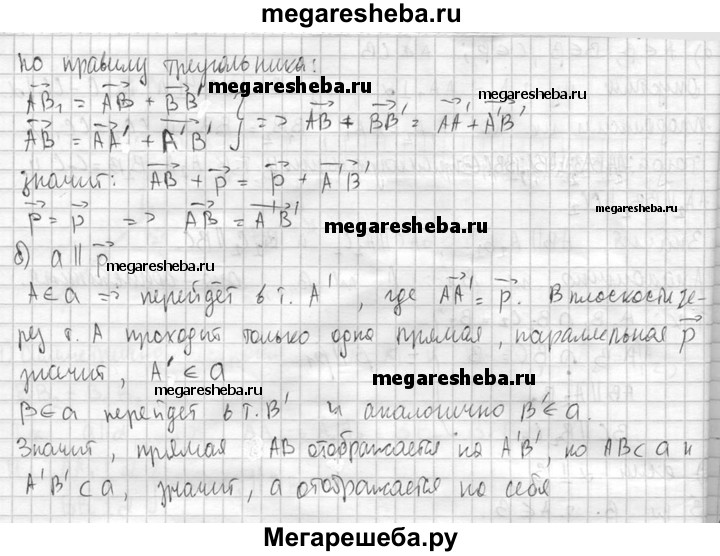 megaresheba.ru
по правилу треугольника:
megaresheba.ru
AB₁ = AB + BB'
megaresheba.ru
AB = AA' + A'B' } => AB + BB' = AA' + A'B'
значит: AB + p = p + A'B'
megaresheba.ru
p = p => AB = A'B'
megaresheba.ru
б) a || p
megaresheba.ru
A∈a => перейдёт в т. A', где AA' = p. В плоскости че-
рез т. A проходит только одна прямая, параллельная p
значит, A' ∈ a
megaresheba.ru
megaresheba.ru
B∈a перейдёт в т. B' и аналогично B'∈a.
Значит, прямая AB отображается на A'B', но AB⊂a и
A'B'⊂a, значит, a отображается на себя
Мегарешеба.ру